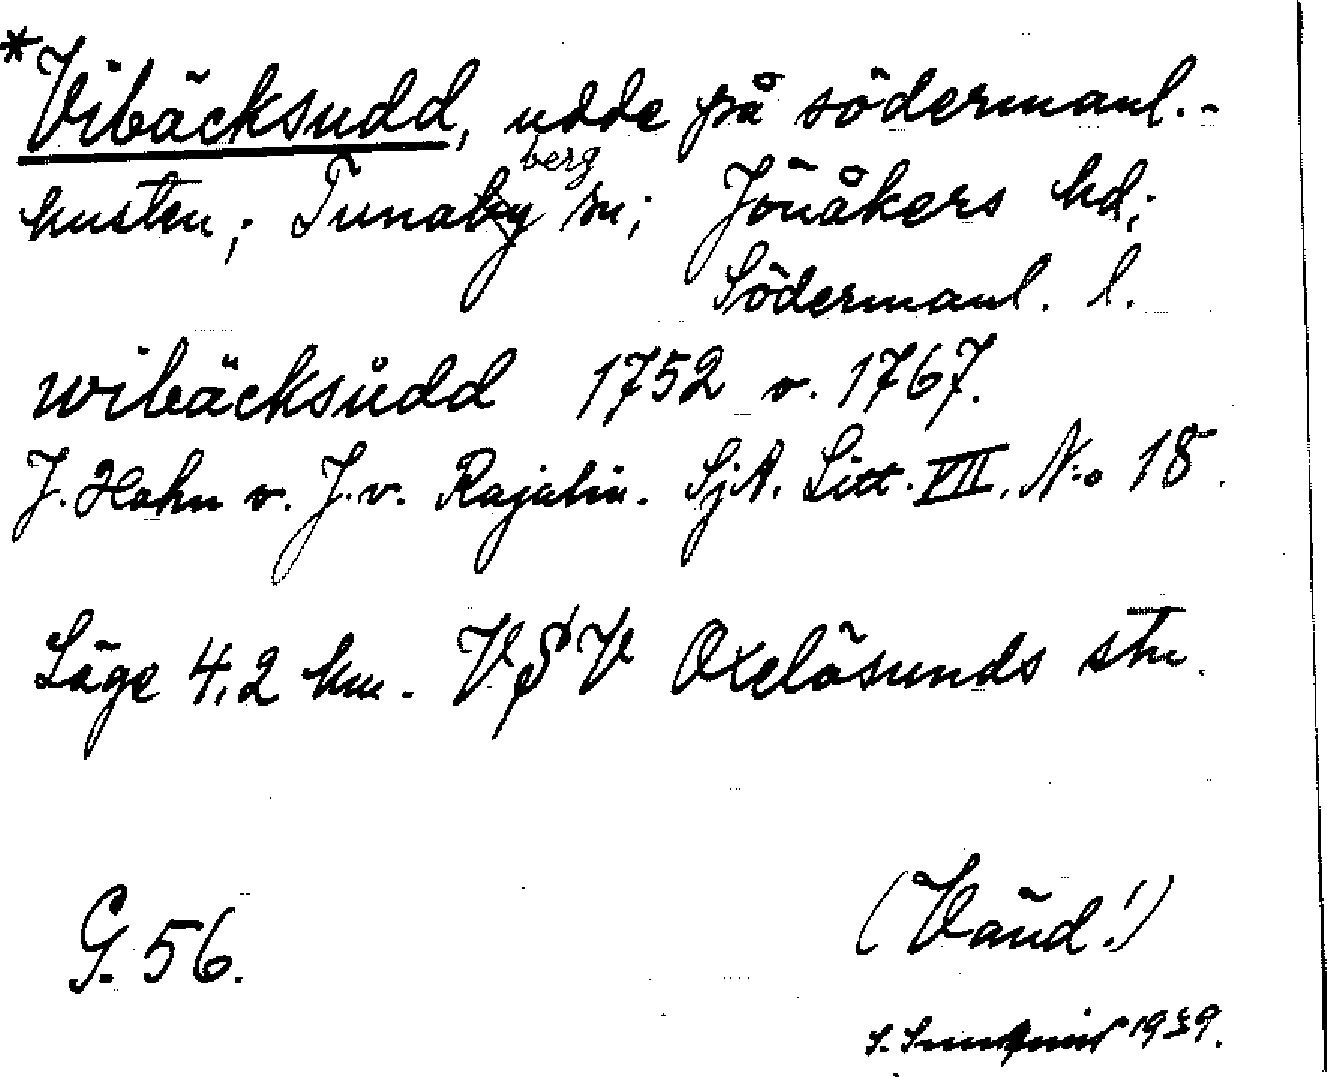 *Vibäcksudd, udde på södermanl.-
kusten; Tunaberg sn; Jönåkers hd;
Södermanl. l.
wibäcksudd 1752 o. 1767.
J. Hahn o. J. v. Rajalin. SjA. Litt. VII. N:o 18.
Läge 4,2 km. VSV Oxelösunds stn.
G. 56.
(Vänd!)
1939.